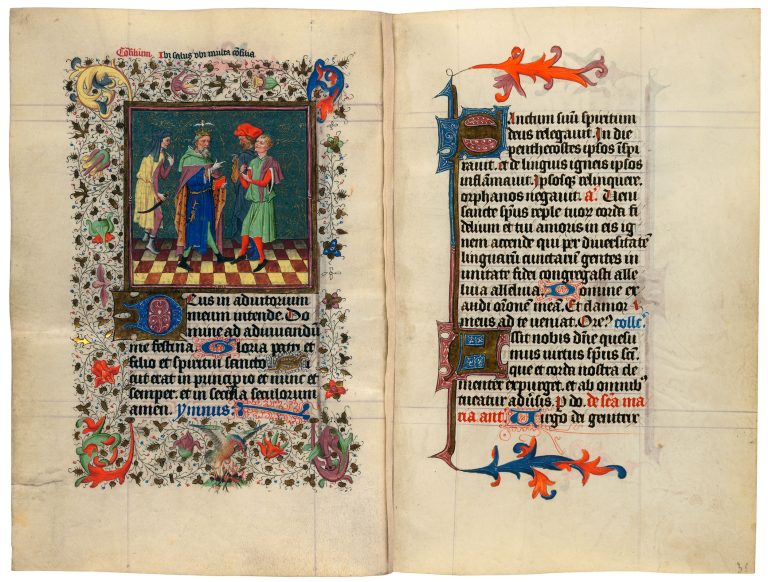 Consilium. Ibi salus ubi multa consilia
Deus in adiutorium
meum intende. Do
mine ad adiuuandū
me festina. Gloria patri et
filio et spiritui sancto
Sicut erat in principio et nunc et
semper. et in secula seculorum
amen. ymnus.
Sanctum suū spiritum
deus relegauit. In die
penthecostes ipsos ispi
rauit. et de linguis igneis ipsos
inflāmauit. Ipsosqȝ relinquere.
orphanos negauit. aᵃ. Ueni
sancte spūs reple tuorꝝ corda fi
delium et tui amoris in eis ig
nem accende qui per diuersitatē
linguarū cunctarū gentes in
unitate fidei congregasti alle
luia alleluia. Domine ex
audi orōnem meā. Et clamor
meus ad te ueniat. Orem collēᵃ.
Assit nobis dñe quesu
mus uirtus spūs scī.
que et corda nostra cle
menter expurget. et ab omnibꝰ
tueatur aduersis. p do. de sca ma
ria ant. Uirgo dei genitrix